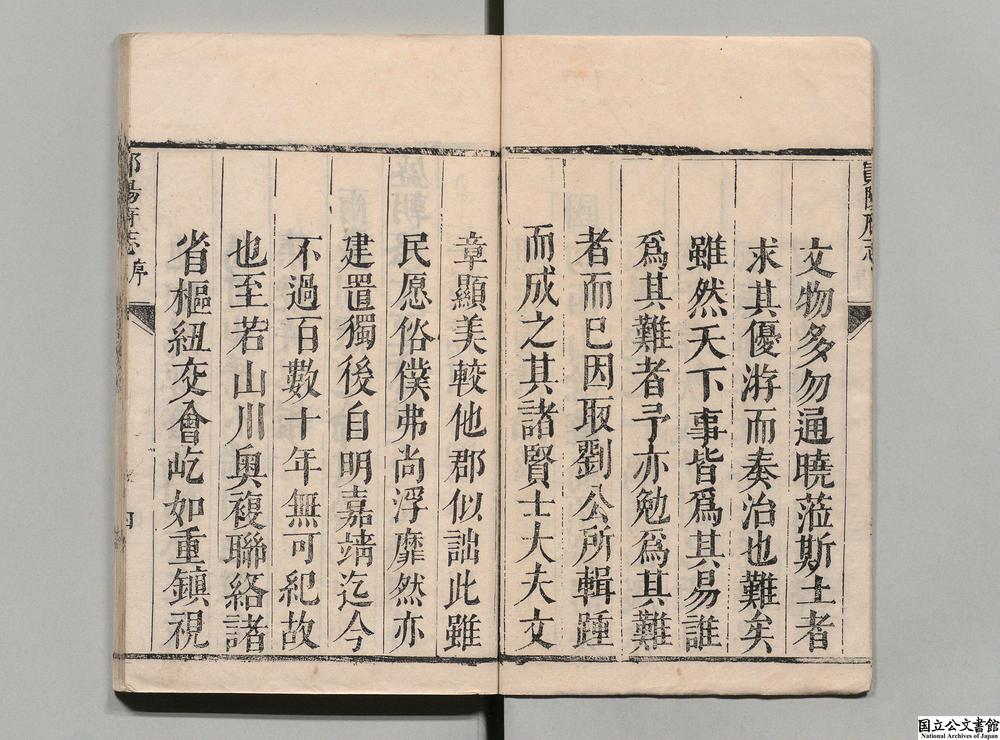 文物多勿通曉蒞斯土者
求其優游而奏治也難矣
雖然天下事皆爲其易誰
爲其難者予亦勉爲其難
者而已因取劉公所輯踵
而成之其諸賢士大夫文
章顯美較他郡似詘此雖
民愿俗僕弗尚浮靡然亦
建置獨後自明嘉靖迄今
不過百數十年無可紀故
也至若山川奧複聯絡諸
省樞紐交會屹如重鎮視
陽府志 序
四
国立公文書館
National Archives of Japan